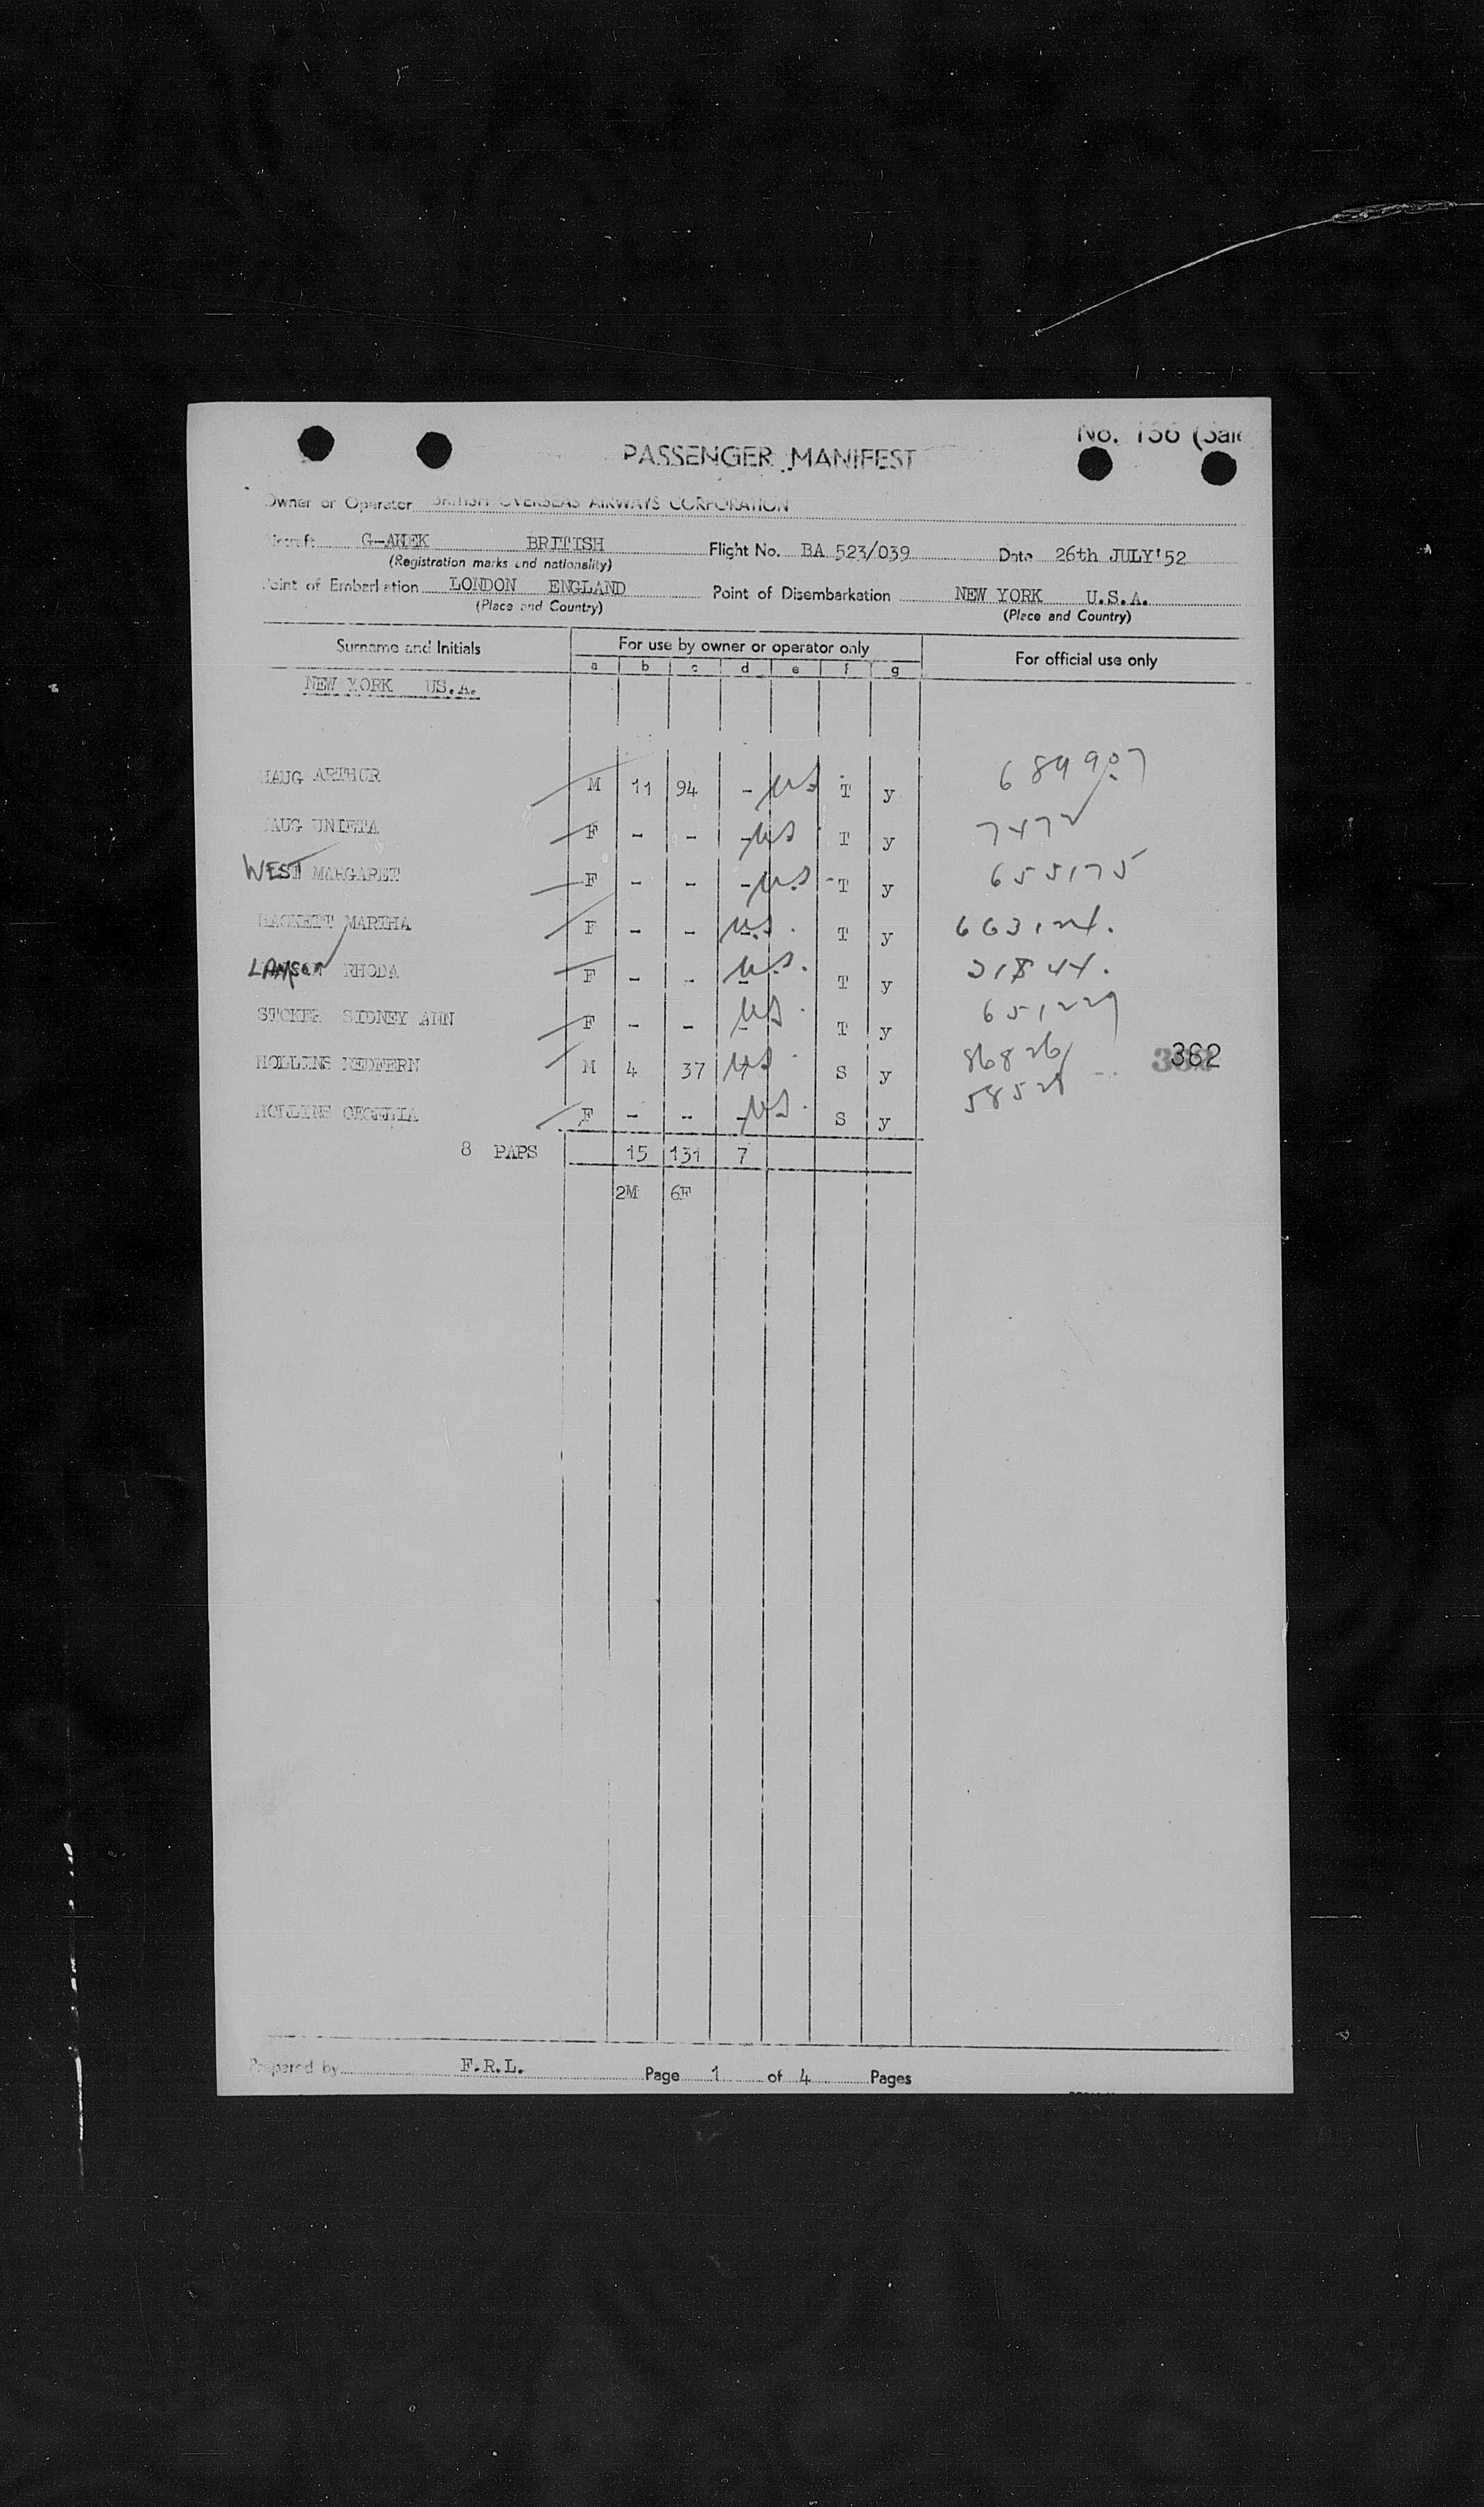 No. 156 (Sale
PASSENGER MANIFEST
Owner or Operator BRITISH OVERSEAS AIRWAYS CORPORATION
Aircraft G-AHEK BRITISH Flight No. BA 523/039 Date 26th JULY'52
(Registration marks and nationality)
Point of Embarkation LONDON ENGLAND Point of Disembarkation NEW YORK U.S.A.
(Place and Country) (Place and Country)
Surname and Initials For use by owner or operator only For official use only
a b c d e f g
NEW YORK US.A.
HAUG ARTHUR M 11 94 - US T y 689907
HAUG UNIETA F - - - US T y 7472
WEST MARGARET F - - - U.S T y 655175
HACKETT MARTHA F - - - U.S. T y 663124.
LAMSON RHODA F - - - U.S. T y 21844.
STOKER SIDNEY ANN F - - - US T y 651229
HOLLINS REDFERN M 4 37 7 US S y 86826 362
HOLLINS CECELIA F - - - U.S. S y 58528
8 PAPS 15 131 7
2M 6F
Prepared by F.R.L. Page 1 of 4 Pages